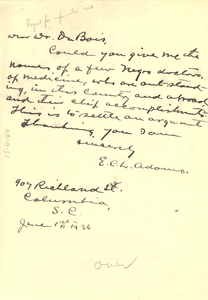 Dr. Du Bois,
Could you give me the
names of a few Negro doctors,
of medicine, who are outstand-
ing, in this country and abroad
and their chief accomplishments.
This is to settle an argument
Thanking you I am
Sincerely
E.C.L. Adams.
907 Richland St.
Columbia,
S.C.
June 1936
over